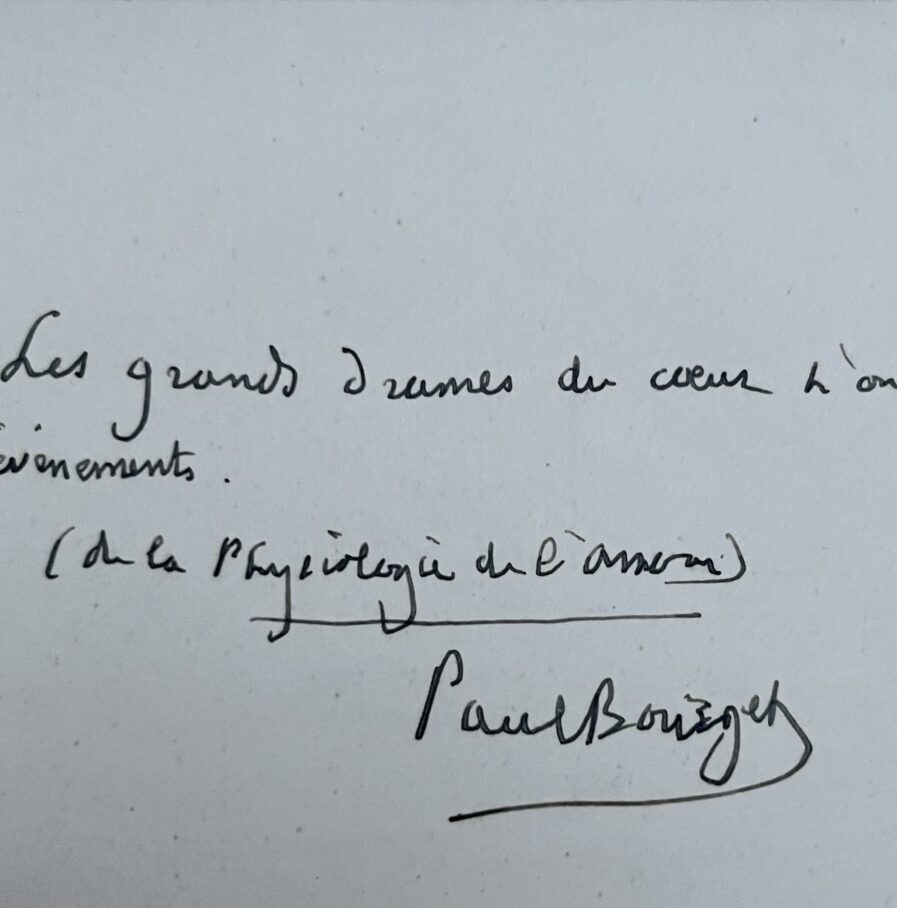 Les grands drames du cœur n'on
évènements.
(de la Physiologie de l'amour)
Paul Bourget